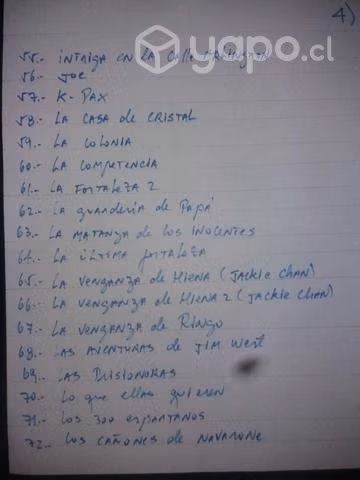 4)
yapo.cl
55.- INTRIGA EN LA Calle
56.- JOE
57.- K-PAX
58.- LA CASA de CRISTAL
59.- LA COLONIA
60.- LA COMPETENCIA
61.- LA FORTALEZA 2
62.- LA guarderia de Papá
63.- LA MATANZA de LOS INOCENTES
64.- LA ÚLTIMA fortaleza
65.- LA VENGANZA de HIENA (JACKIE CHAN)
66.- LA VENGANZA de HIENA 2 (JACKIE CHAN)
67.- LA VENGANZA de RINGO
68.- LAS AVENTURAS de JIM West
69.- LAS PRISIONERAS
70.- Lo que ellas quieren
71.- LOS 300 espartanos
72.- LOS CAÑONES de NAVARONE